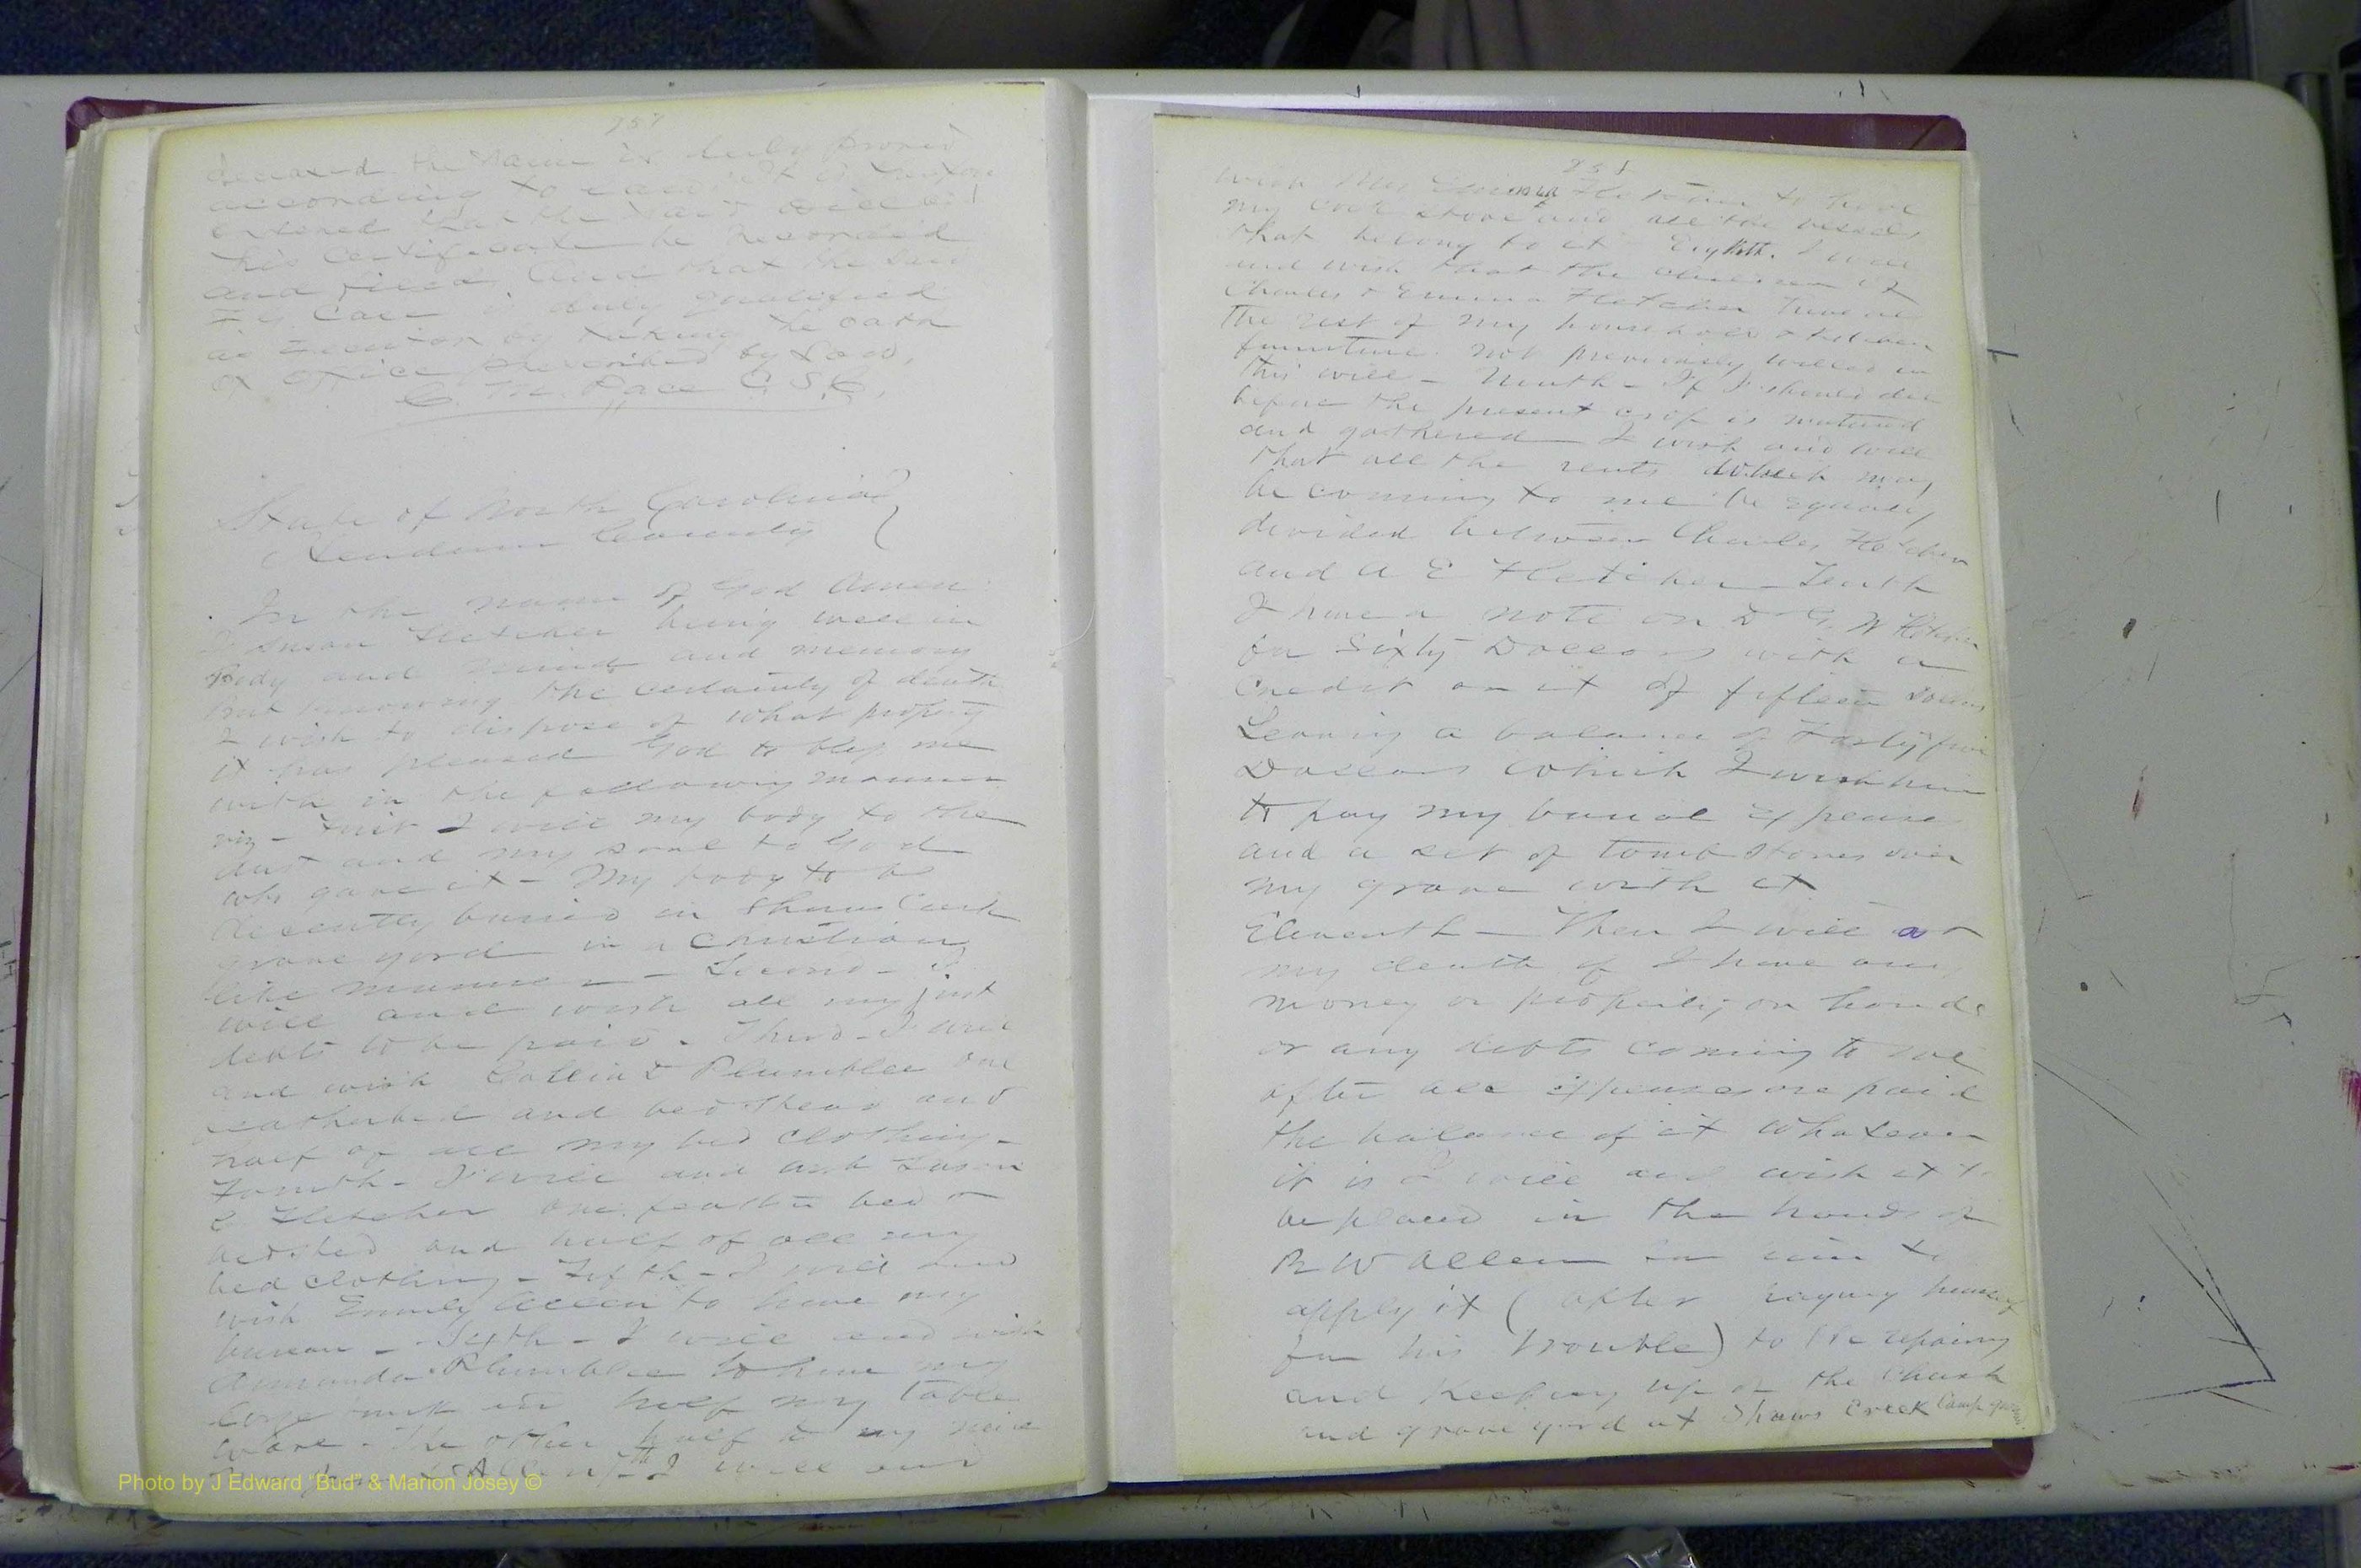 257
deceased the same is duly proved
according to law. It is therefore
ordered that the said will &
this Certificate be Recorded
and filed, And that the said
is duly qualified
as Executor by taking the oath
of office prescribed by Law.
C. M. Pace C.S.C.
State of North Carolina
Henderson County
In the name of God Amen
I Susan Fletcher being well in
Body and mind and memory
but knowing the certainty of death
I wish to dispose of what property
it has pleased God to bless me
with in the following manner
viz - First I will my body to the
dust and my soul to God
who gave it - My body to be
decently buried in Shaws Creek
grave yard in a Christian
like manner - Second - I
will and wish all my just
debts to be paid - Third - I will
and wish Plumblee one
featherbed and bedstead and
half of all my bed clothing -
Fourth - I will and wish Susan
E Fletcher one feather bed &
bedsted and half of all my
bed clothing - Fifth - I will and
wish Emmily Allen to have my
bureau - Sixth - I will and wish
Amanda Plumblee to have my
large trunk and half my table
ware - The other half to my neice
Allen 7th I will and
258
wish Mrs Emma Fletcher to have
my cook stove and all the vessels
that belong to it Eighth. I will
and wish that the children of
Charles & Emma Fletcher have all
the rest of my household & kitchen
furniture not previously willed in
this will - Ninth - If I should die
before the present crop is matured
and gathered I wish and will
that all the rents which may
be coming to me be equally
divided between Charles Fletcher
and A E Fletcher - Tenth
I have a note on Dr G. W Fletcher
for Sixty Dollars with a
Credit on it of fifteen Dollars
Leaving a balance of Forty five
Dollars which I wish him
to pay my burial Expenses
and a set of tomb Stones over
my grave with it
Eleventh - Then I will at
my death if I have any
money or property on hand
or any debts coming to me
after all expenses are paid
the balance of it whatever
it is I will and wish it to
be placed in the hands of
R W Allen for him to
apply it ( after paying himself
for his trouble) to the repairing
and keeping up of the Church
and grave yard at Shaws Creek Camp ground
Photo by J Edward "Bud" & Marion Josey ©